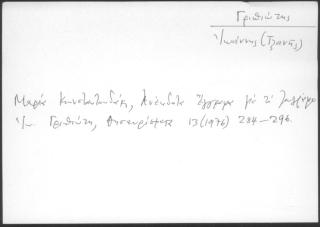 Γριπιώτης
Ἰωάννης (Τζαννῆς)
Μαρία Κωνσταντουδάκη, Ἀνέκδοτα ἔγγραφα γιὰ τὸ ζωγράφο
Ἰω. Γριπιώτη, Θησαυρίσματα 13 (1976) 284-296.